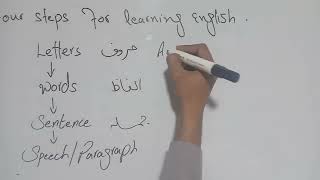 our steps for learning English.
Letters حروف A
words الفاظ
Sentence جملہ
Speech/Paragraph